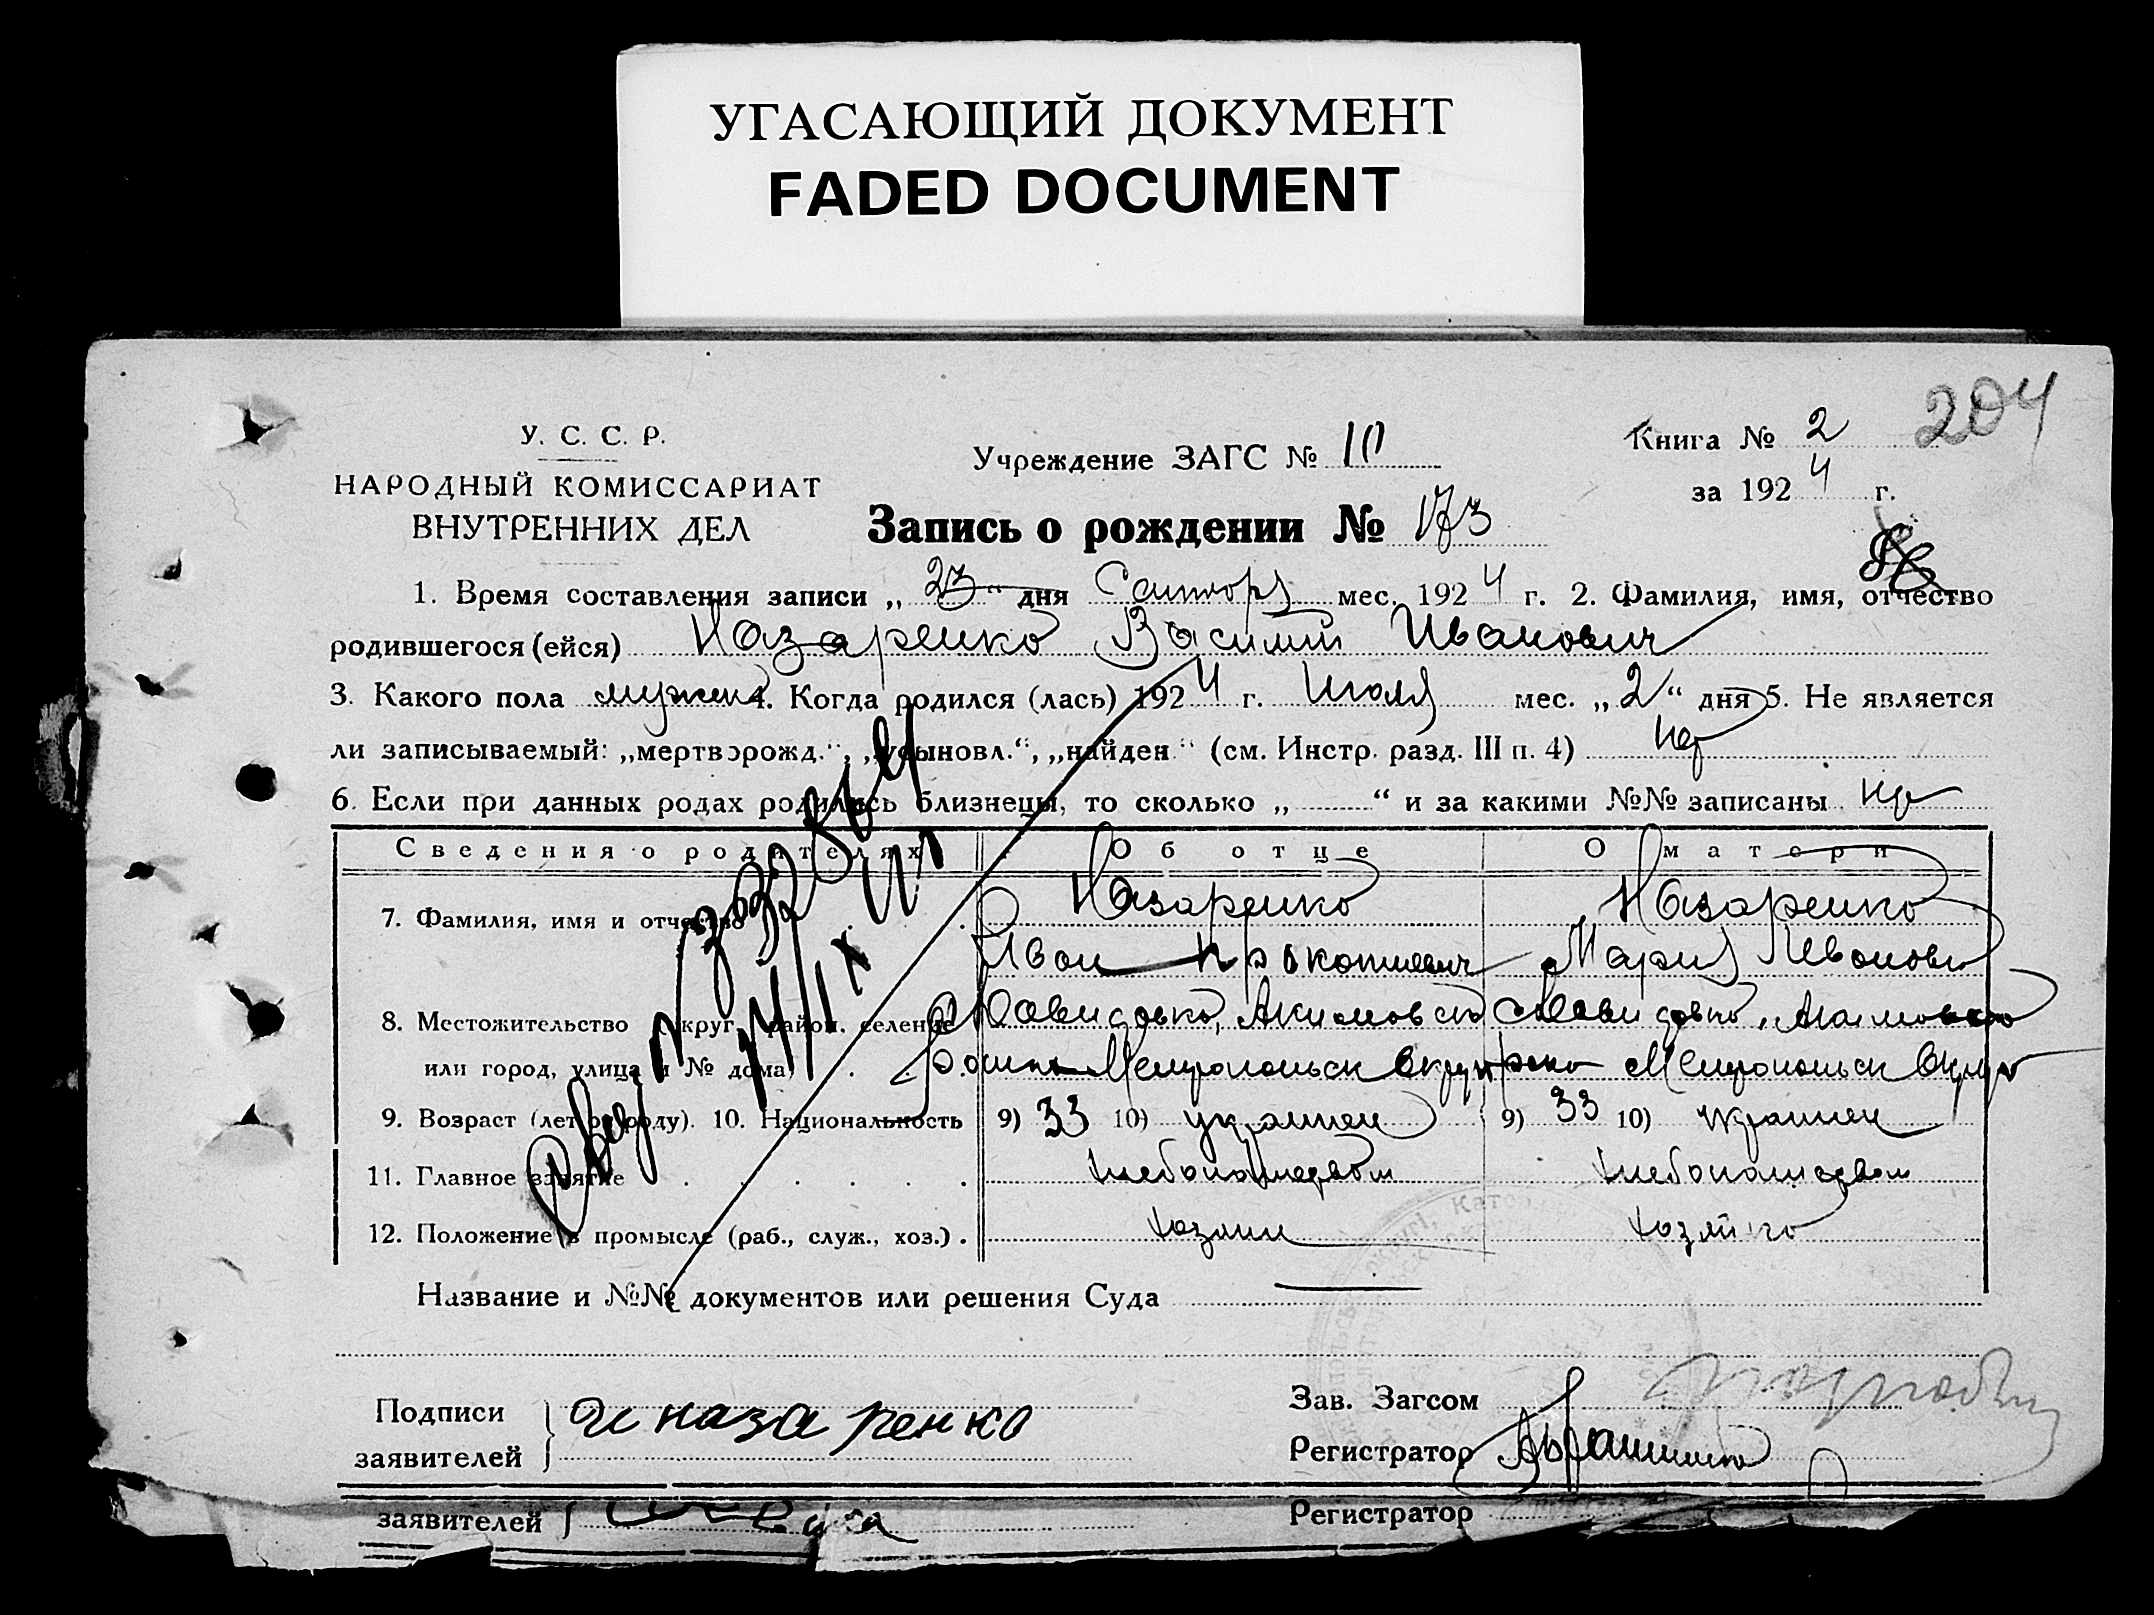 УГАСАЮЩИЙ ДОКУМЕНТ
FADED DOCUMENT
204
У. С. С. Р.
НАРОДНЫЙ КОМИССАРИАТ
ВНУТРЕННИХ ДЕЛ
Учреждение ЗАГС № 10
Книга № 2
за 1924 г.
Запись о рождении № 173
1. Время составления записи „23“ дня мес. 1924 г. 2. Фамилия, имя, отчество
родившегося (ейся) Назаренко Василий Иванович
3. Какого пола мужск 4. Когда родился (лась) 1924 г. Июля мес. „2“ дня 5. Не является
ли записываемый: „мертворожд.“, „усыновл.“, „найден“ (см. Инстр. разд. III п. 4) Нет
6. Если при данных родах родились близнецы, то сколько „ “ и за какими №№ записаны Нет
Сведения о родителях Об отце О матери
7. Фамилия, имя и отчество Назаренко Назаренко
Иван Прокопиевич Мария
8. Местожительство (округ, район, селение Давидовка, Давидовка,
или город, улица и № дома) Мелитопольск Округ Мелитопольск Округ
9. Возраст (лет от роду). 10. Национальность 9) 33 10) украинец 9) 33 10)
11. Главное занятие хлебопашеством хлебопашеством
12. Положение в промысле (раб., служ., хоз.) . хозяин хозяйка
Название и №№ документов или решения Суда
Подписи
заявителей
И Назаренко
Зав. Загсом
Регистратор
заявителей
Регистратор